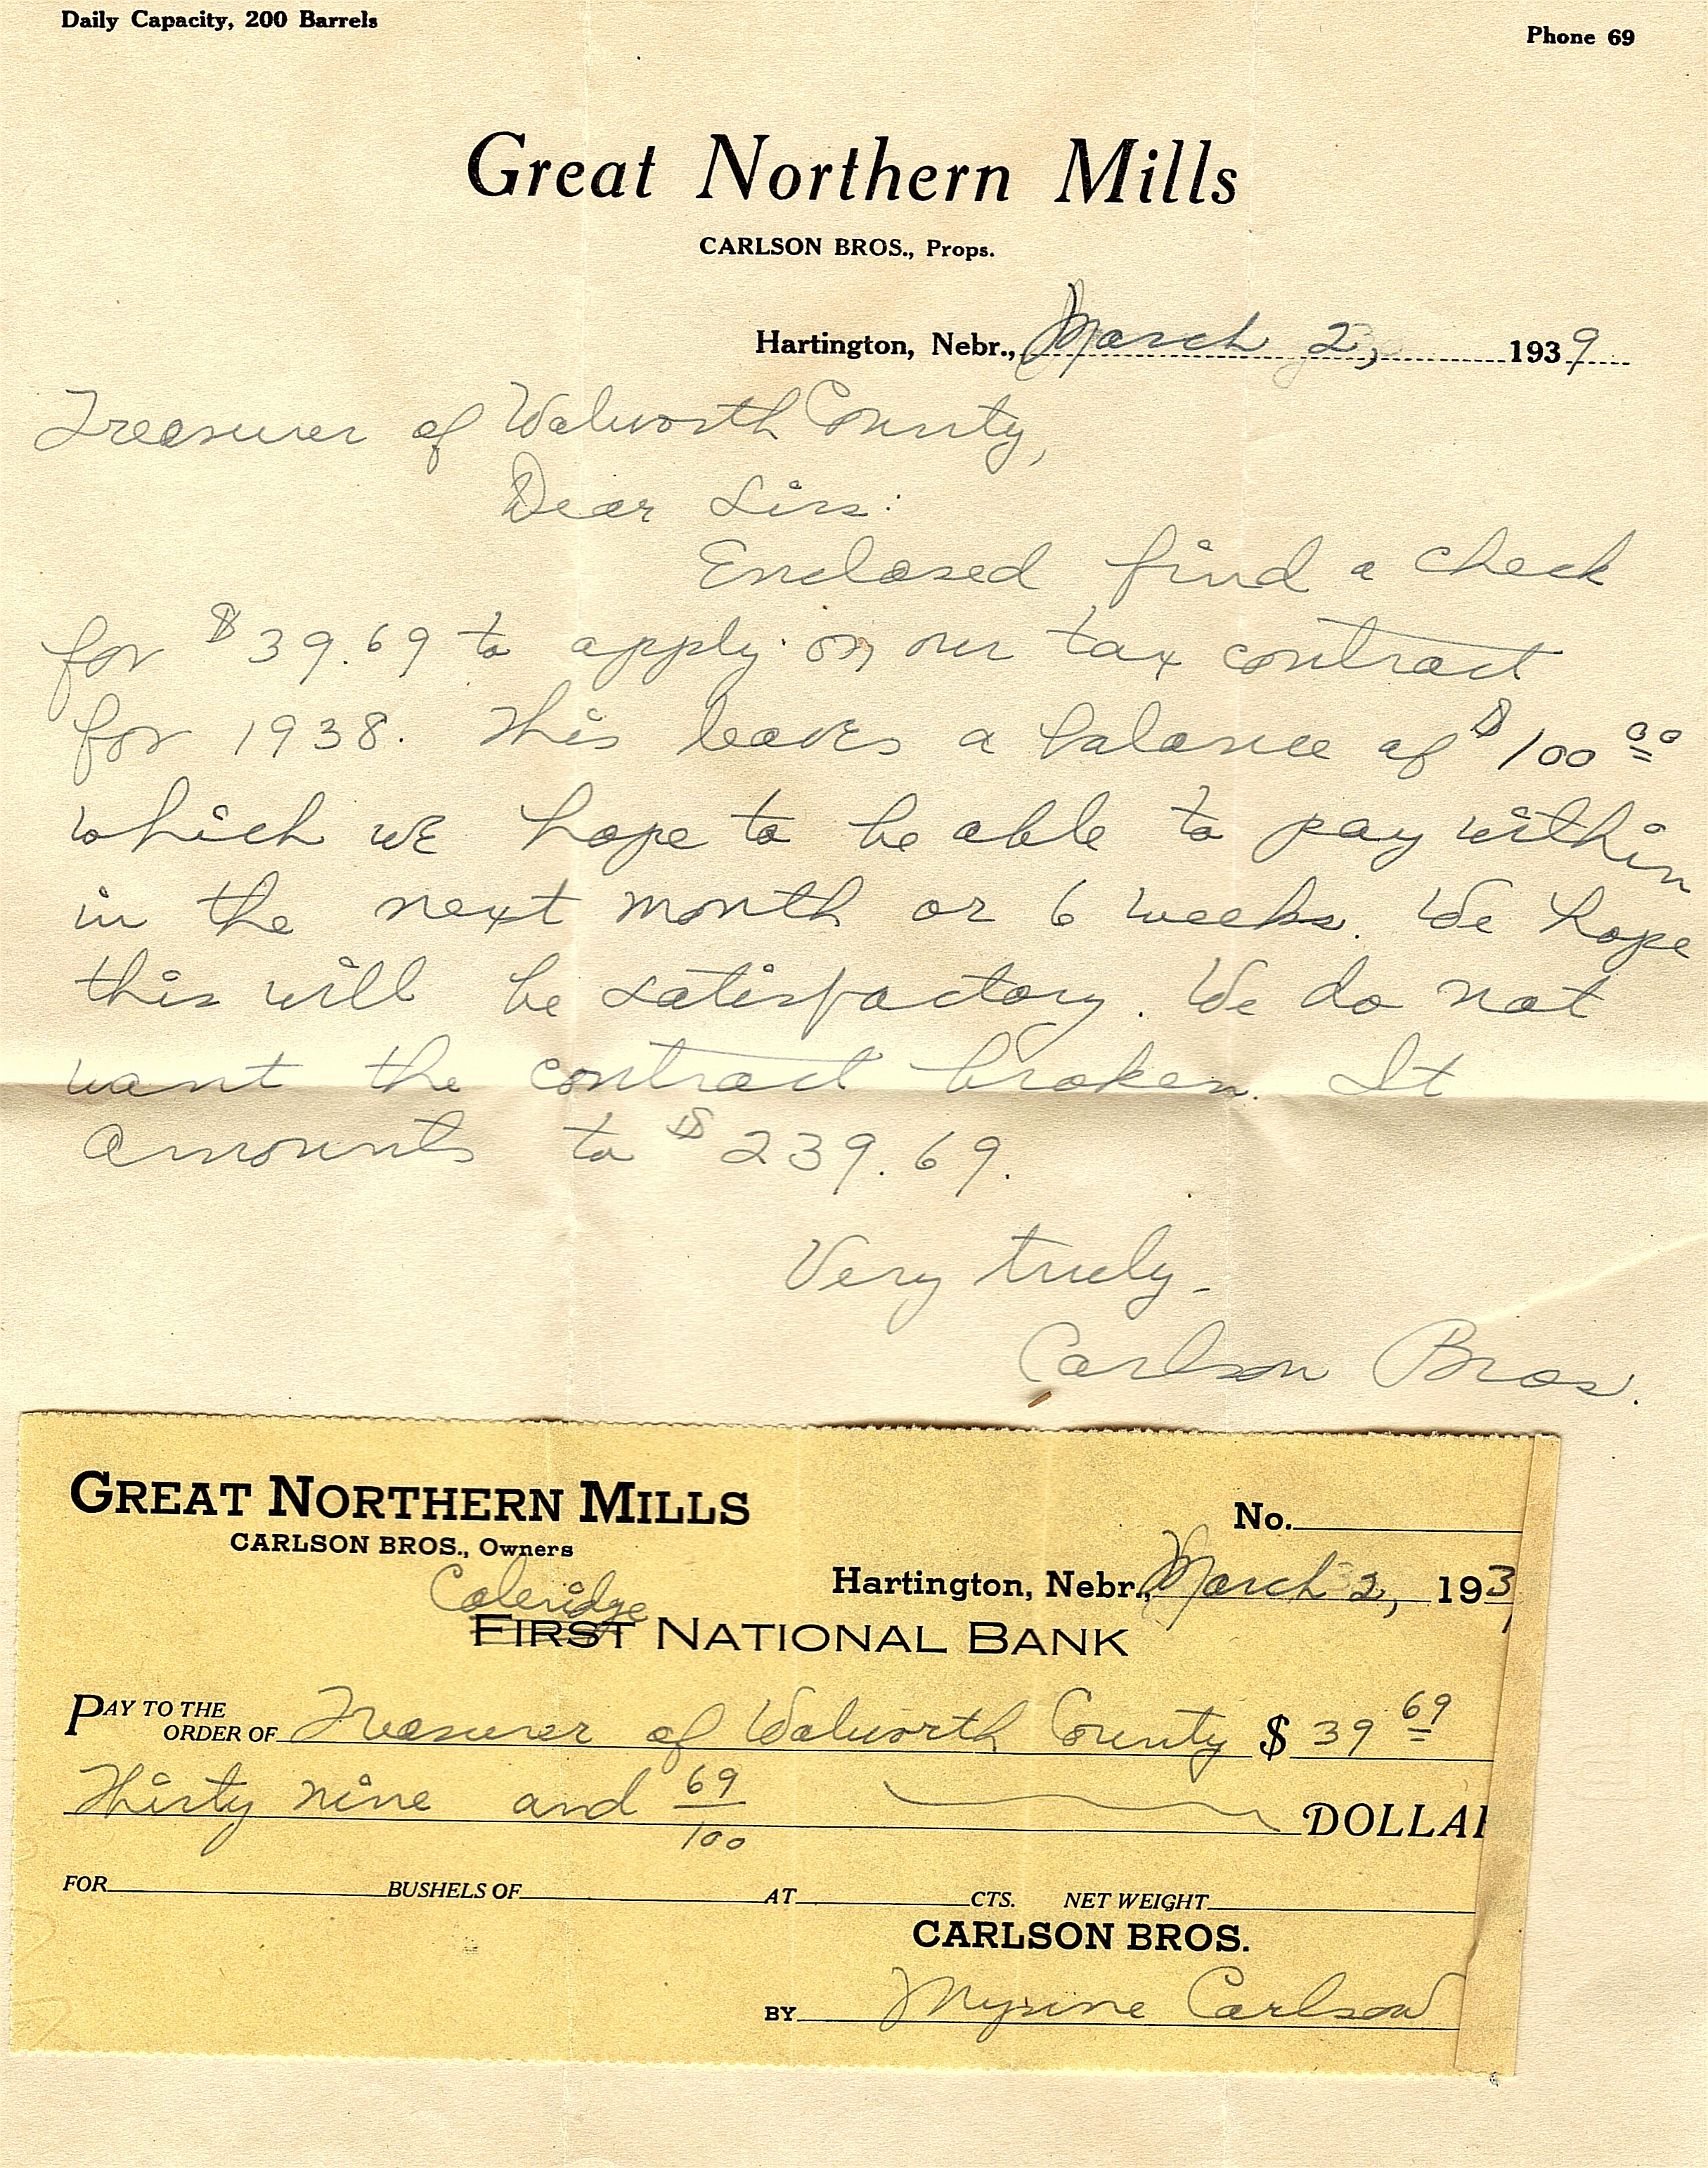 Daily Capacity, 200 Barrels
Phone 69
Great Northern Mills
CARLSON BROS., Props.
Hartington, Nebr., March 2, 1939
Treasurer of Walworth County,
Dear Sirs:
Enclosed find a check
for $39.69 to apply on our tax contract
for 1938. This leaves a balance of $100 00
which we hope to be able to pay within
in the next month or 6 weeks. We hope
this will be satisfactory. We do not
want the contract broken. It
amounts to $239.69.
Very truly-
Carlson Bros.
GREAT NORTHERN MILLS
No.
CARLSON BROS., Owners
Hartington, Nebr., March 2, 193
Coleridge
FIRST NATIONAL BANK
PAY TO THE
ORDER OF Treasurer of Walworth County $ 39 69
Thirty nine and 69/100 DOLLAR
FOR BUSHELS OF AT CTS. NET WEIGHT
CARLSON BROS.
BY Carlson